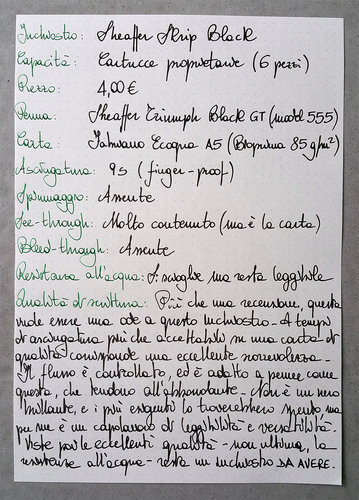 Inchiostro: Sheaffer Skrip Black
Capacità: Cartucce proprietarie (6 pezzi)
Prezzo: 4,00 €
Penna: Sheaffer Triumph Black GT (model 555)
Carta: Fabriano Ecoqua A5 (Bioprima 85 g/m²)
Asciugatura: 9s (finger-proof)
Spiumaggio: Assente
See-through: Molto contenuto (ma è la carta)
Bleed-through: Assente
Resistenza all'acqua: Si scioglie ma resta leggibile
Qualità di scrittura: Più che una recensione, questa
vuole essere una ode a questo inchiostro. A tempi
di asciugatura più che accettabili su una carta di
qualità corrisponde una eccellente scorrevolezza.
Il flusso è controllato, ed è adatto a penne come
questa, che tendono all'abbondante. Non è un nero
brillante, e i più esigenti lo troverebbero spento, ma
per me è un capolavoro di leggibilità e versatilità.
Viste poi le eccellenti qualità - non ultima, la
resistenza all'acqua - resta un inchiostro DA AVERE.